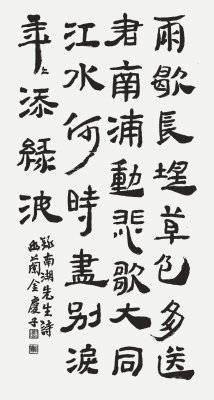 雨歇長堤草色多送
君南浦動悲歌大同
江水何時盡别淚
年々添綠波
鄭南湖先生詩
幽蘭金慶子